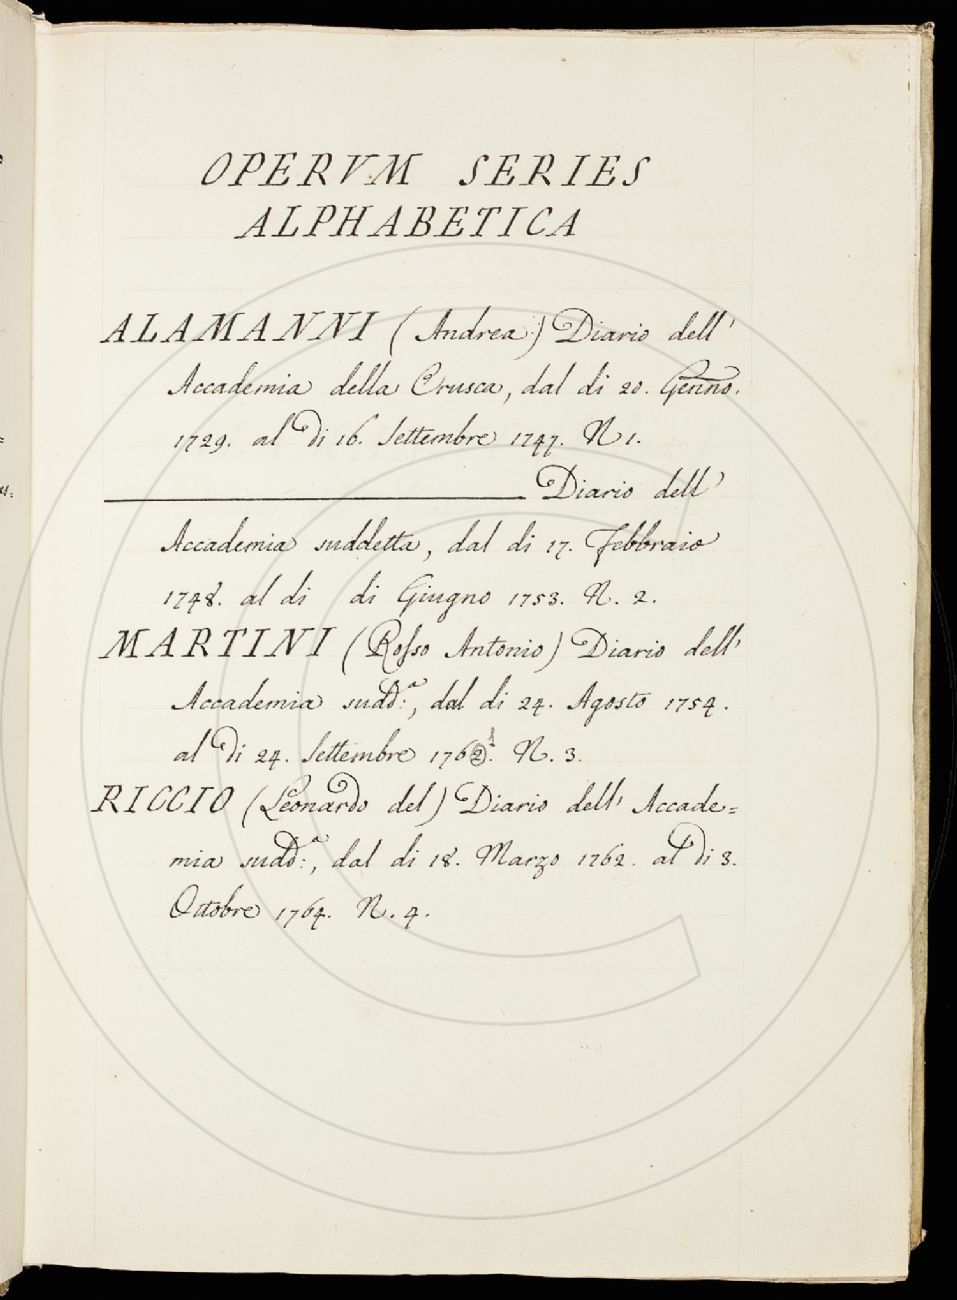 OPERVM SERIES
ALPHABETICA
ALAMANNI (Andrea) Diario dell'
Accademia della Crusca, dal di 20. Genno.
1729. al di 16. Settembre 1747. N 1.
Diario dell'
Accademia suddetta, dal di 17. Febbraio
1748. al di di Giugno 1753. N. 2.
MARTINI (Rosso Antonio) Diario dell'
Accademia sudd:ª, dal di 24. Agosto 1754.
al di 24. Settembre 1762. N. 3.
RICCIO (Leonardo del) Diario dell' Accade=
mia sudd:ª, dal di 18. Marzo 1762. al di 3.
Ottobre 1764. N. 4.